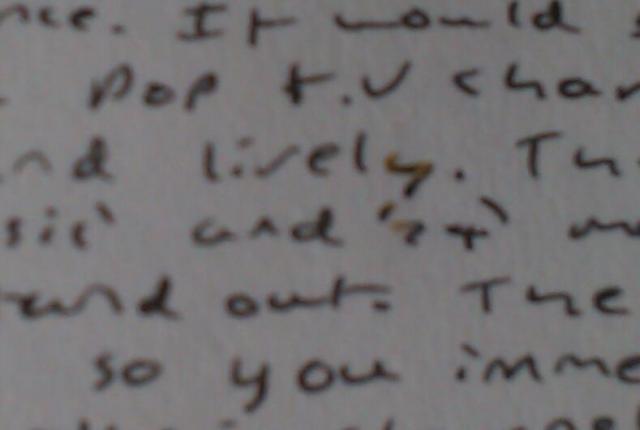 nce. It would s
. Pop t.v char
nd lively. Th
sic' and '24' m
and out. The
so you imme